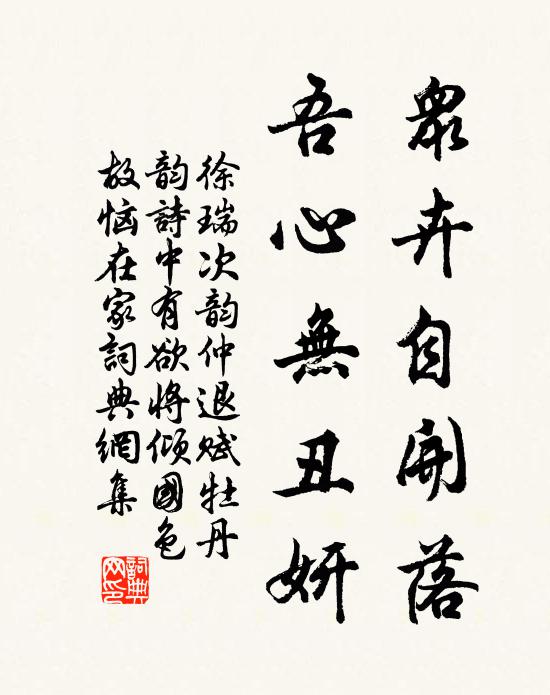 眾卉自開落
吾心無丑妍
徐瑞次韵仲退赋牡丹
韵詩中有欲將倾國色
故惱在家詞典網集
詞典网印